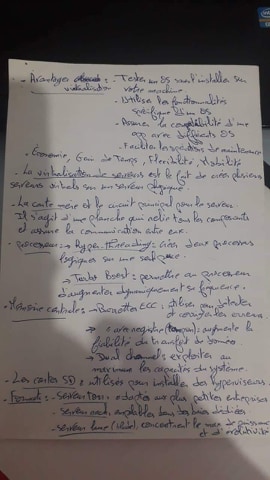 - Avantages virtualisation : - Tester un OS sans l'installer sur
votre machine.
- Utiliser les fonctionnalités
spécifique d'un OS
- Assurer la compatibilité d'une
app avec différents OS
- Facilite les opérations de maintenance
- Économie, Gain de Temps, Flexibilité, Mobilité
- La virtualisation de serveurs est le fait de créer plusieurs
serveurs virtuels sur un serveur physique.
- La carte mère est le circuit principal pour le serveur
Il s'agit d'une planche qui relie tous les composants
et assure la communication entre eux.
- processeur : → Hyper threading : Créer deux processeurs
logiques sur une seule puce.
→ Turbo Boost : permettre au processeur
d'augmenter dynamiquement sa fréquence.
- Mémoire centrale : → Barrettes ECC : utilisées pour détecter
et corriger les erreurs.
→ carte registre (tampon) : augmente la
fiabilité du transfert de données.
→ Dual channel : exploiter au
maximum les capacités du système.
- Les cartes SD : utilisés pour installer des hyperviseurs
- Formats : - serveur Tour : adaptés aux plus petites entreprises
- serveur rack : empilables dans des baies dédiées
- serveur lame (blade) : concentrent le max de puissance
et d'évolutivité